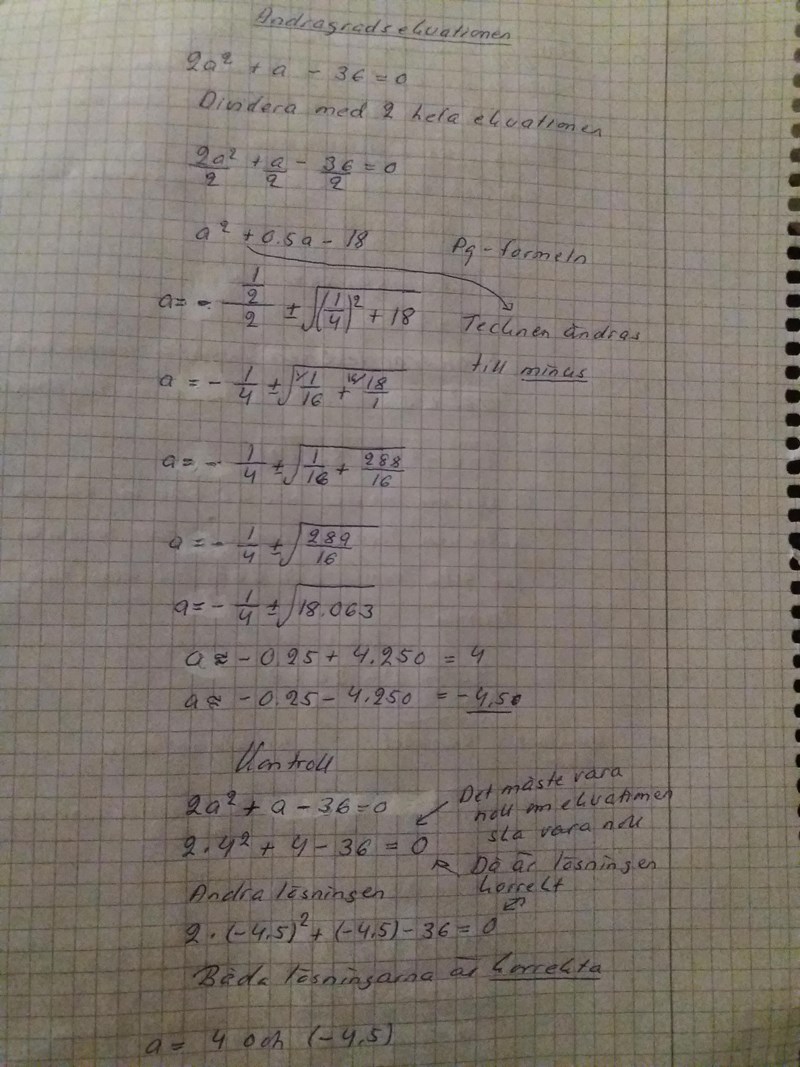 Andragradsekvationen
2a² + a - 36 = 0
Dividera med 2 hela ekvationen
2a²/2 + a/2 - 36/2 = 0
a² + 0.5a - 18
Pq-formeln
a = - (1/2)/2 ± √((1/4)² + 18)
Tecknen ändras
till minus
a = - 1/4 ± √(1/16 + 18/1)
a = - 1/4 ± √(1/16 + 288/16)
a = - 1/4 ± √(289/16)
a = - 1/4 ± √18.063
a ≈ - 0.25 + 4.250 = 4
a ≈ - 0.25 - 4.250 = -4,50
Kontroll
2a² + a - 36 = 0
Det måste vara
noll om ekvationen
ska vara noll
2 · 4² + 4 - 36 = 0
Då är lösningen
korrekt
Andra lösningen
2 · (-4,5)² + (-4,5) - 36 = 0
Båda lösningarna är korrekta
a = 4 och (-4,5)